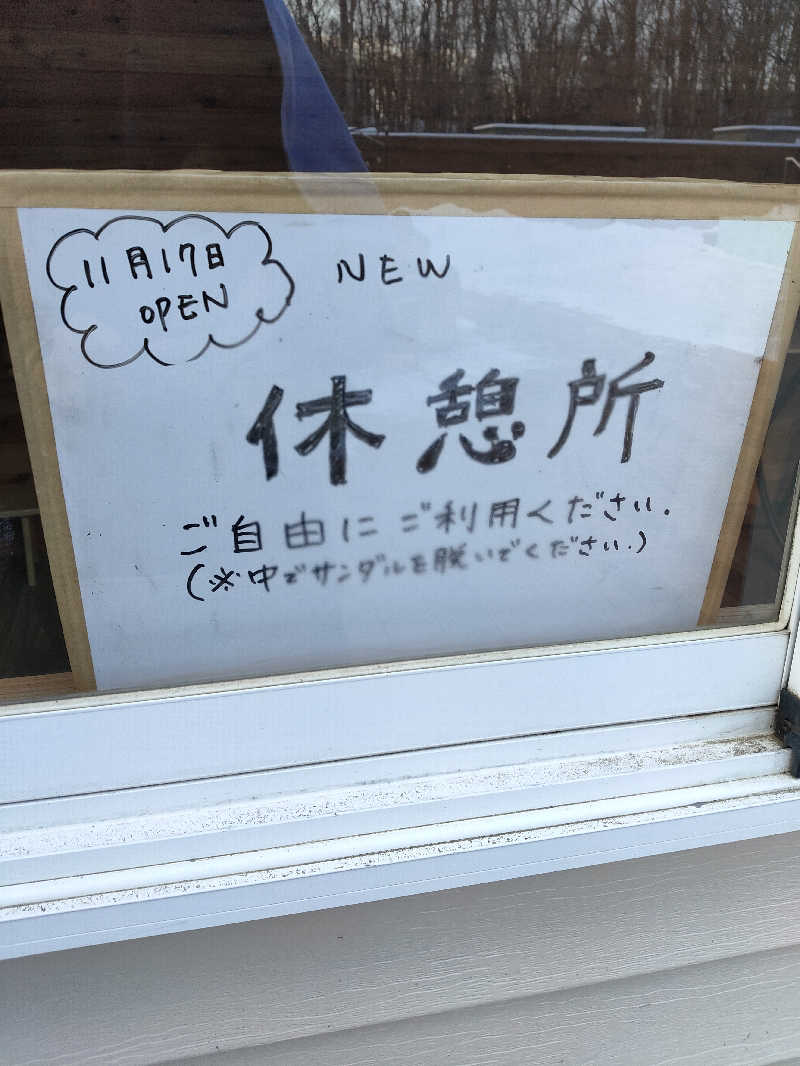 11月17日
OPEN
NEW
休憩所
ご自由にご利用ください.
(※中でサンダルを脱いでください.)